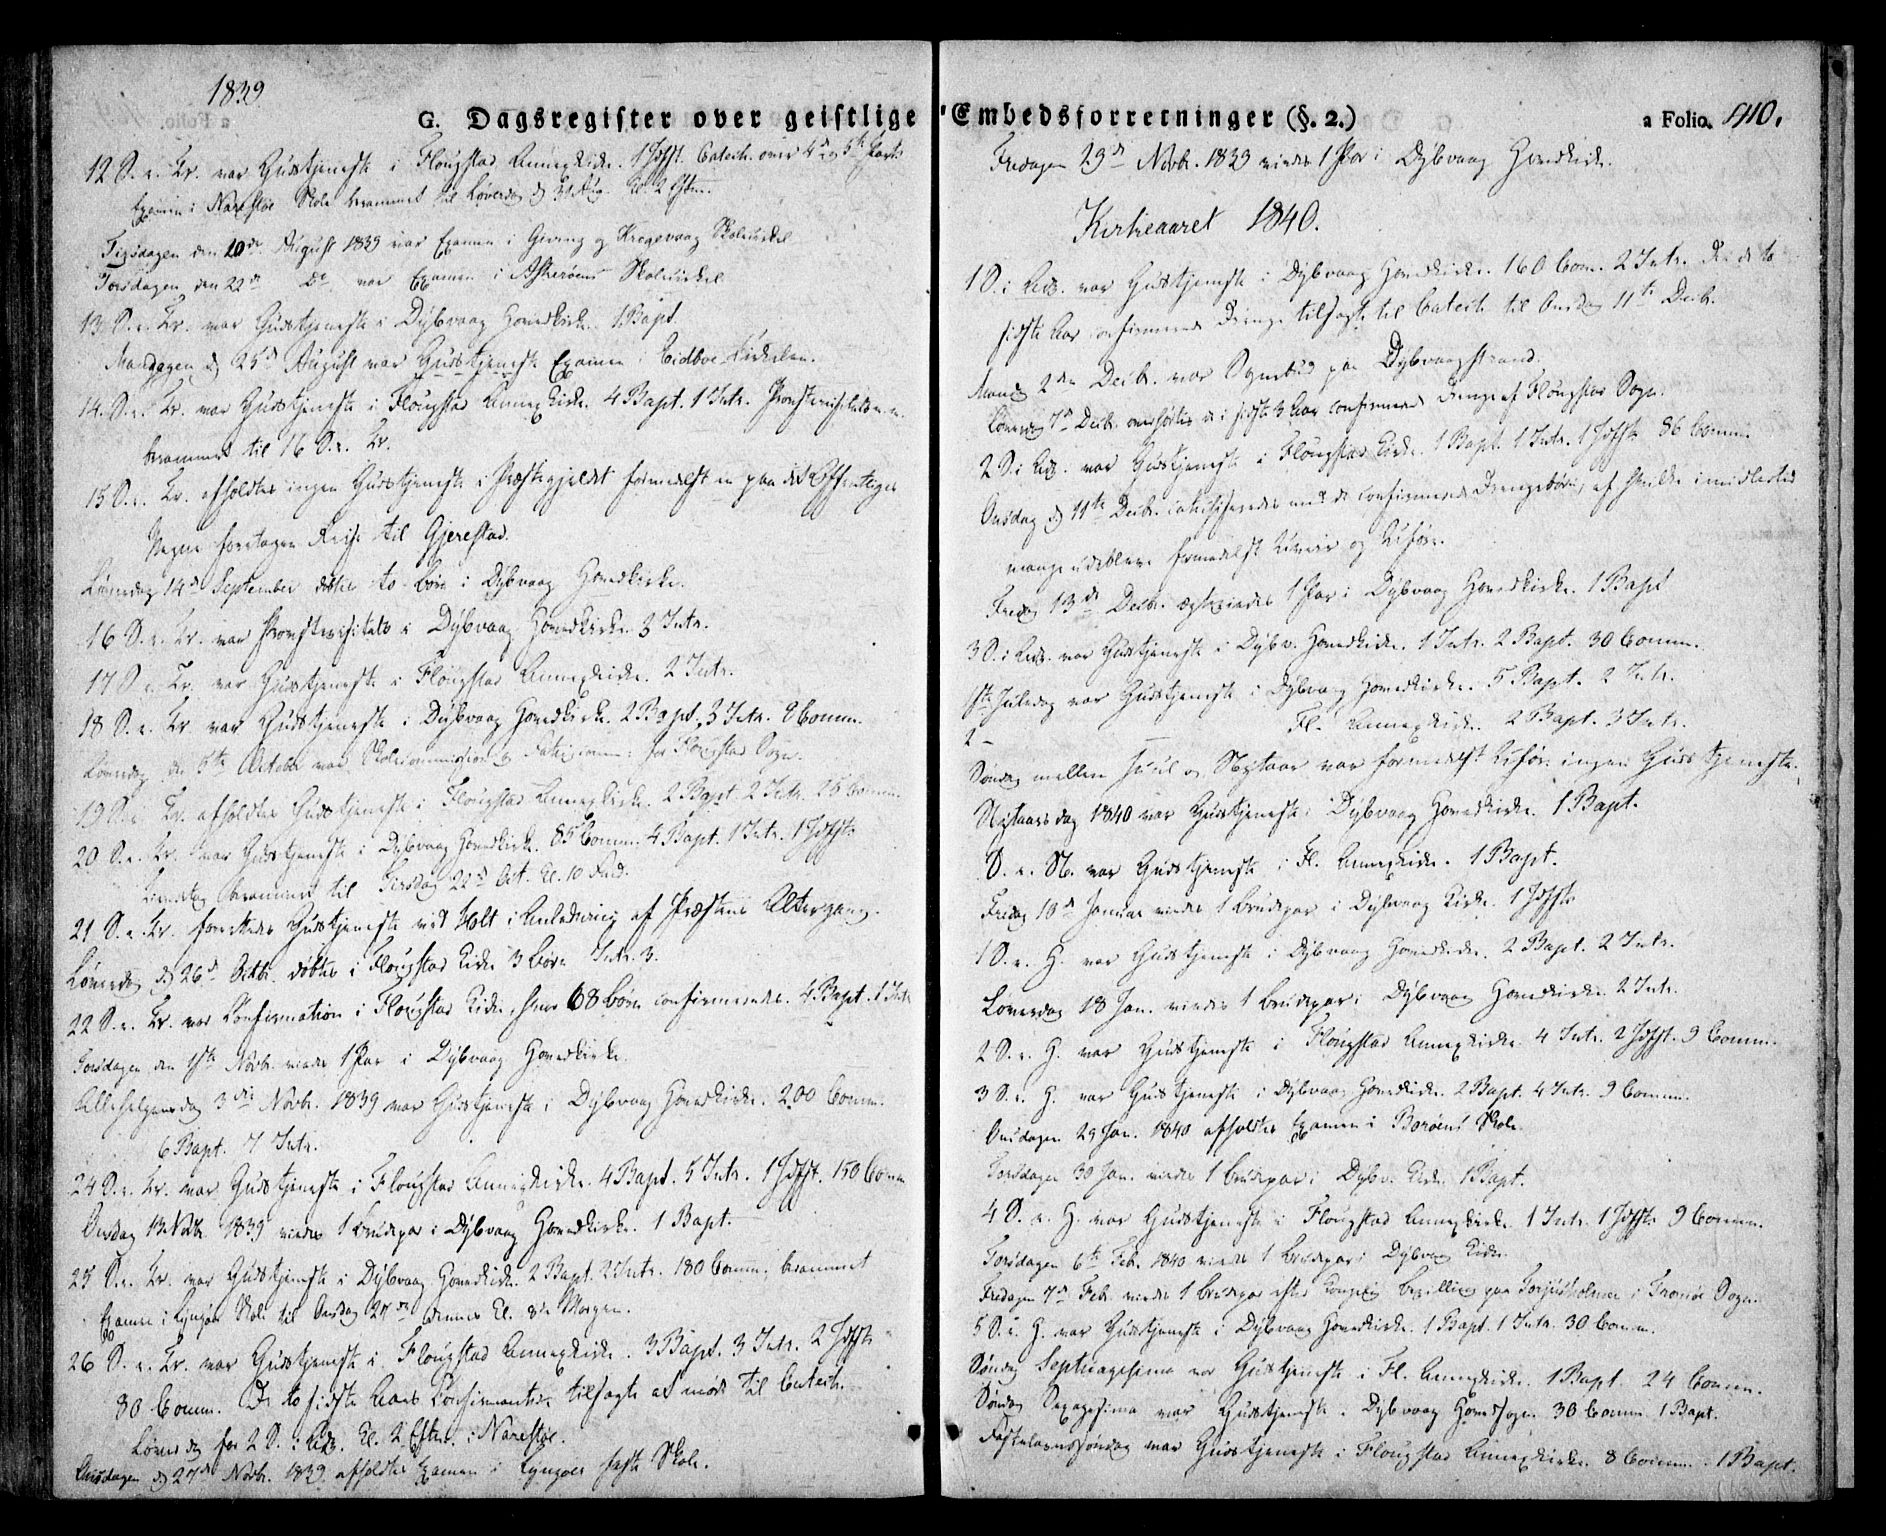 1839
G. Dagsregister over geistlige Embedsforretninger (§. 2.)
a Folio. 410.
12 S. e. Tr. var Gudstjeneste i Flougstad Annexkirke. 1 Jdfst. Catech. over 4de og 5te Part
Examen i Narestøe Skole berammet til Løverdag d. 31 Aug. Kl. 2 Efterm.
Tirsdagen den 20de August 1839 var Examen i Geving og Kragevaag Skolekirkel
Torsdagen den 22de Do var Examen i Askerøens Skolekirkel
13 S. e. Tr. var Gudstjeneste i Dÿbvaag Hovedkirke. 1 Bapt.
Mandagen d. 25de August var Gudstjeneste Examen i Eidboe
14. S. e. Tr. var Gudstjeneste i Flougstad Annexkirke 4 Bapt. 1 Intr. Provstevisitats
berammet til 16 S. e. Tr.
15 S. e. Tr. afholdtes ingen Gudstjeneste i Præstegjeldet formedelst en paa det Offentliges
Vegne foretagen Reise til Gjerestad.
Løverdag 14de September døbtes to Børn i Dÿbvaag Hovedkirke.
16 S. e. Tr. var Provstevisitats i Dÿbvaag Hovedkirke 3 Intr.
17 S. e. Tr. var Gudstjeneste i Flougstad Annexkirke. 2 Intr.
18 S. e. Tr. var Gudstjeneste i Dÿbvaag Hovedkirke. 2 Bapt. 3 Intr. 8 Comm.
Løverdag den 5te October var Skolecommission og for Flougstad Sogn.
19 S. e. Tr. afholdtes Gudstjeneste i Flougstad Annexkirke. 2 Bapt. 2 Intr. 26 Comm.
20 S. e. Tr. var Gudstjeneste i Dÿbvaag Hovedkirke. 85 Comm. 4 Bapt. 1 Intr. 1 Jdfst
berammet til Tirsdag 22de Oct. Kl. 10
21 S. e. Tr. forrettedes Gudstjeneste ved Holt i Anledning af Præstens Altergang.
Løverdag d. 26de Octbr. døbtes i Flougstad Kirke 3 Børn Intr. 3.
22 S. e. Tr. var Confirmation i Flougstad Kirke, hvor 68 Børn confirmeredes. 4 Bapt. 1 Intr
Torsdagen den 1ste Novbr. viedes 1 Par i Dÿbvaag Hovedkirke.
Allehelgensdag 3die Novbr. 1839 var Gudstjeneste i Dÿbvaag Hovedkirke. 200 Comm.
6 Bapt. 7 Intr.
24 S. e. Tr. var Gudstjeneste i Flougstad Annexkirke. 4 Bapt. 5 Intr. 1 Jdfst. 150 Comm
Onsdag 13 Novbr. 1839 viedes 1 Brudepar i Dÿbvaag Hovedkirke. 1 Bapt.
25 S. e. Tr. var Gudstjeneste i Dÿbvaag Hovedkirke. 2 Bapt. 2 Intr. 180 Comm. berammet
Examen i Lyngøer Skole til Onsdag 27de dennes Kl. 8 Morgen.
26 S. e. Tr. var Gudstjeneste i Flougstad Annexkirke. 3 Bapt. 3 Intr. 2 Jdfst
30 Comm. De to sidste Aars Confirmanter tilsagte at møde til Catech.
Løverdag før 2 S. i Adv. Kl. 2 Efterm. i Narestøe.
Onsdagen d. 27de Novbr. 1839 afholdtes Examen i Lyngøer faste Skole.
Fredagen 29de Novbr. 1839 viedes 1 Par i Dÿbvaag Hovedkirke.
Kirkeaaret 1840.
1 S. i Adv. var Gudstjeneste i Dÿbvaag Hovedkirke. 160 Comm. 2 Intr. De to
sidste Aar confirmerede Drenge tilsagte til Catech. til Onsdag 11te Decbr.
Mandag 2den Decbr. var Sognebud paa Dÿbvaagstrand.
Løverdag 7de Decbr. overhørtes de i sidste 3 Aar confirmerede Drenge af Flougstad Sogn.
2 S. i Adv. var Gudstjeneste i Flougstad Kirke. 1 Bapt. 1 Intr. 1 Jdfst. 86 Comm.
Onsdag d. 11te Decbr. catechiseredes med de confirmerede Drengebørn, af hvilke imidlertid
mange udebleve formedelst Uveir og Uføre.
Fredag 13de Decbr. ægteviedes 1 Par i Dÿbvaag Hovedkirke. 1 Bapt
3 S. i Adv. var Gudstjeneste i Dÿbv. Hovedkirke. 1 Intr. 2 Bapt. 30 Comm.
1ste Juledag var Gudstjeneste i Dÿbvaag Hovedkirke. 5 Bapt. 2 Intr.
2 – — Fl. Annexkirke. 2 Bapt. 3 Intr.
Søndag mellem Juul og Nÿtaar var formedelst Uføre ingen Gudstjeneste.
Nÿtaarsdag 1840 var Gudstjeneste i Dÿbvaag Hovedkirke. 1 Bapt.
S. e. N. var Gudstjeneste i Fl. Annexkirke. 1 Bapt.
Fredag 10de Januar viedes 1 Brudepar i Dÿbvaag Kirke. 1 Jdfst
1 S. e. H. var Gudstjeneste i Dÿbvaag Hovedkirke. 2 Bapt. 2 Intr.
Løverdag 18 Jan. viedes 1 Brudepar i Dÿbvaag Hovedkirke. 2 Intr.
2 S. e. H. var Gudstjeneste i Flougstad Annexkirke 4 Intr. 2 Jdfst. 9 Comm.
3 S. e. H. var Gudstjeneste i Dÿbvaag Hovedkirke. 2 Bapt. 4 Intr. 9 Comm.
Onsdagen 29 Jan. 1840 afholdtes Examen i Borøens Skole.
Torsdagen 30 Jan. viedes 1 Brudepar i Dÿbv. Kirke. 1 Bapt.
4 S. e. H. var Gudstjeneste i Flougstad Annexkirke. 1 Intr. 1 Jdfst 9 Comm.
Torsdagen 6te Feb. 1840 viedes 1 Brudepar i Dÿbvaag Kirke.
Fredagen 7de Feb. viedes 1 Brudepar efter Kongelig Bevilling paa Torjusholmen i Tromøe Sogn.
5 S. e. H. var Gudstjeneste i Dÿbvaag Hovedkirke. 1 Bapt. 1 Intr. 30 Comm.
Søndag Septuagesima var Gudstjeneste i Fl. Annexkirke. 1 Bapt. 24 Comm.
Søndag Sexagesima var Gudstjeneste i Dÿbvaag Hovedsogn. 30 Comm. 1 Bapt.
Fastelavnssøndag var Gudstjeneste i Flougstad Annexkirke. 8 Comm. 1 Bapt.